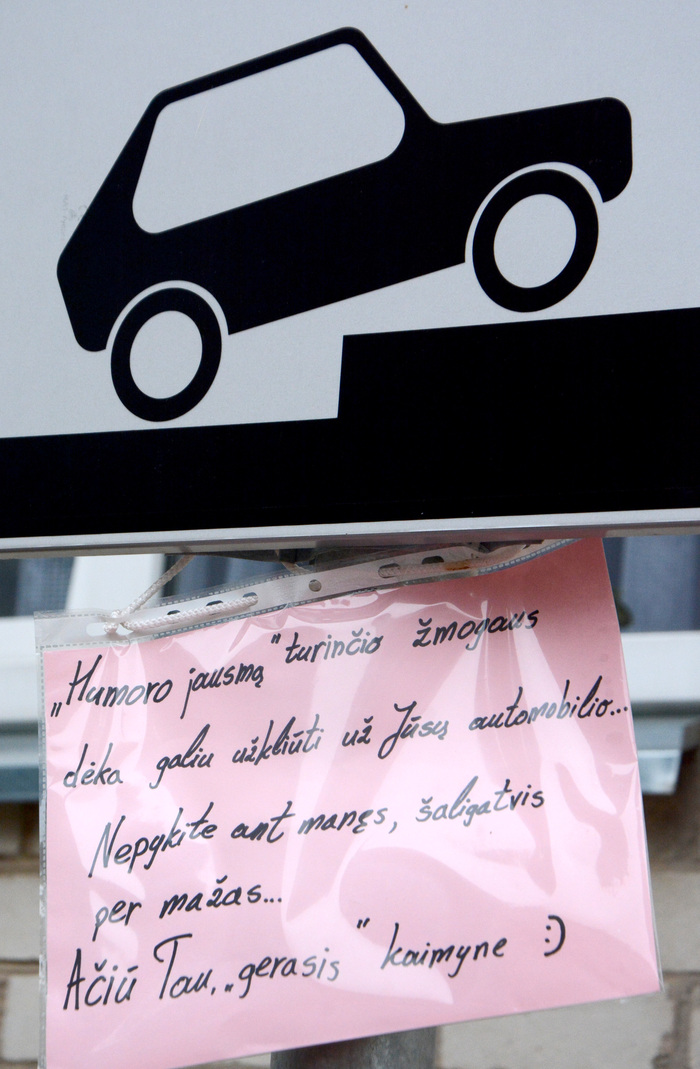 „Humoro jausmą" turinčio žmogaus
dėka galiu užkliūti už Jūsų automobilio...
Nepykite ant manęs, šaligatvis
per mažas...
Ačiū Tau, „gerasis" kaimyne :)